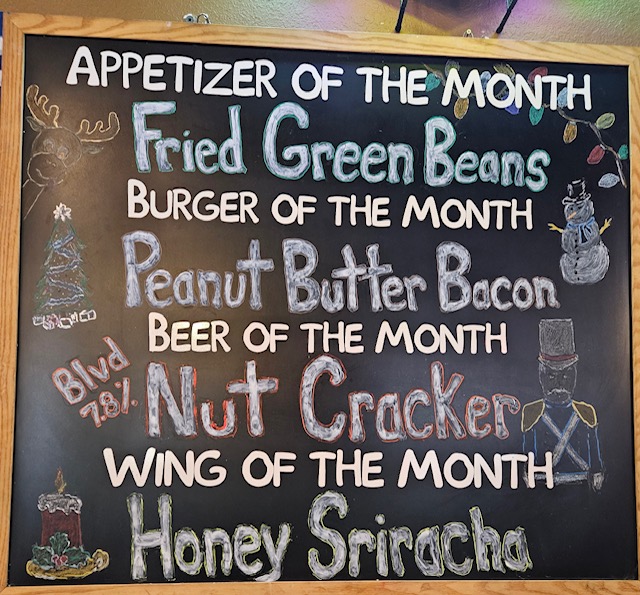 APPETIZER OF THE MONTH
Fried Green Beans
BURGER OF THE MONTH
Peanut Butter Bacon
BEER OF THE MONTH
Blvd
7.8%
Nut Cracker
WING OF THE MONTH
Honey Sriracha